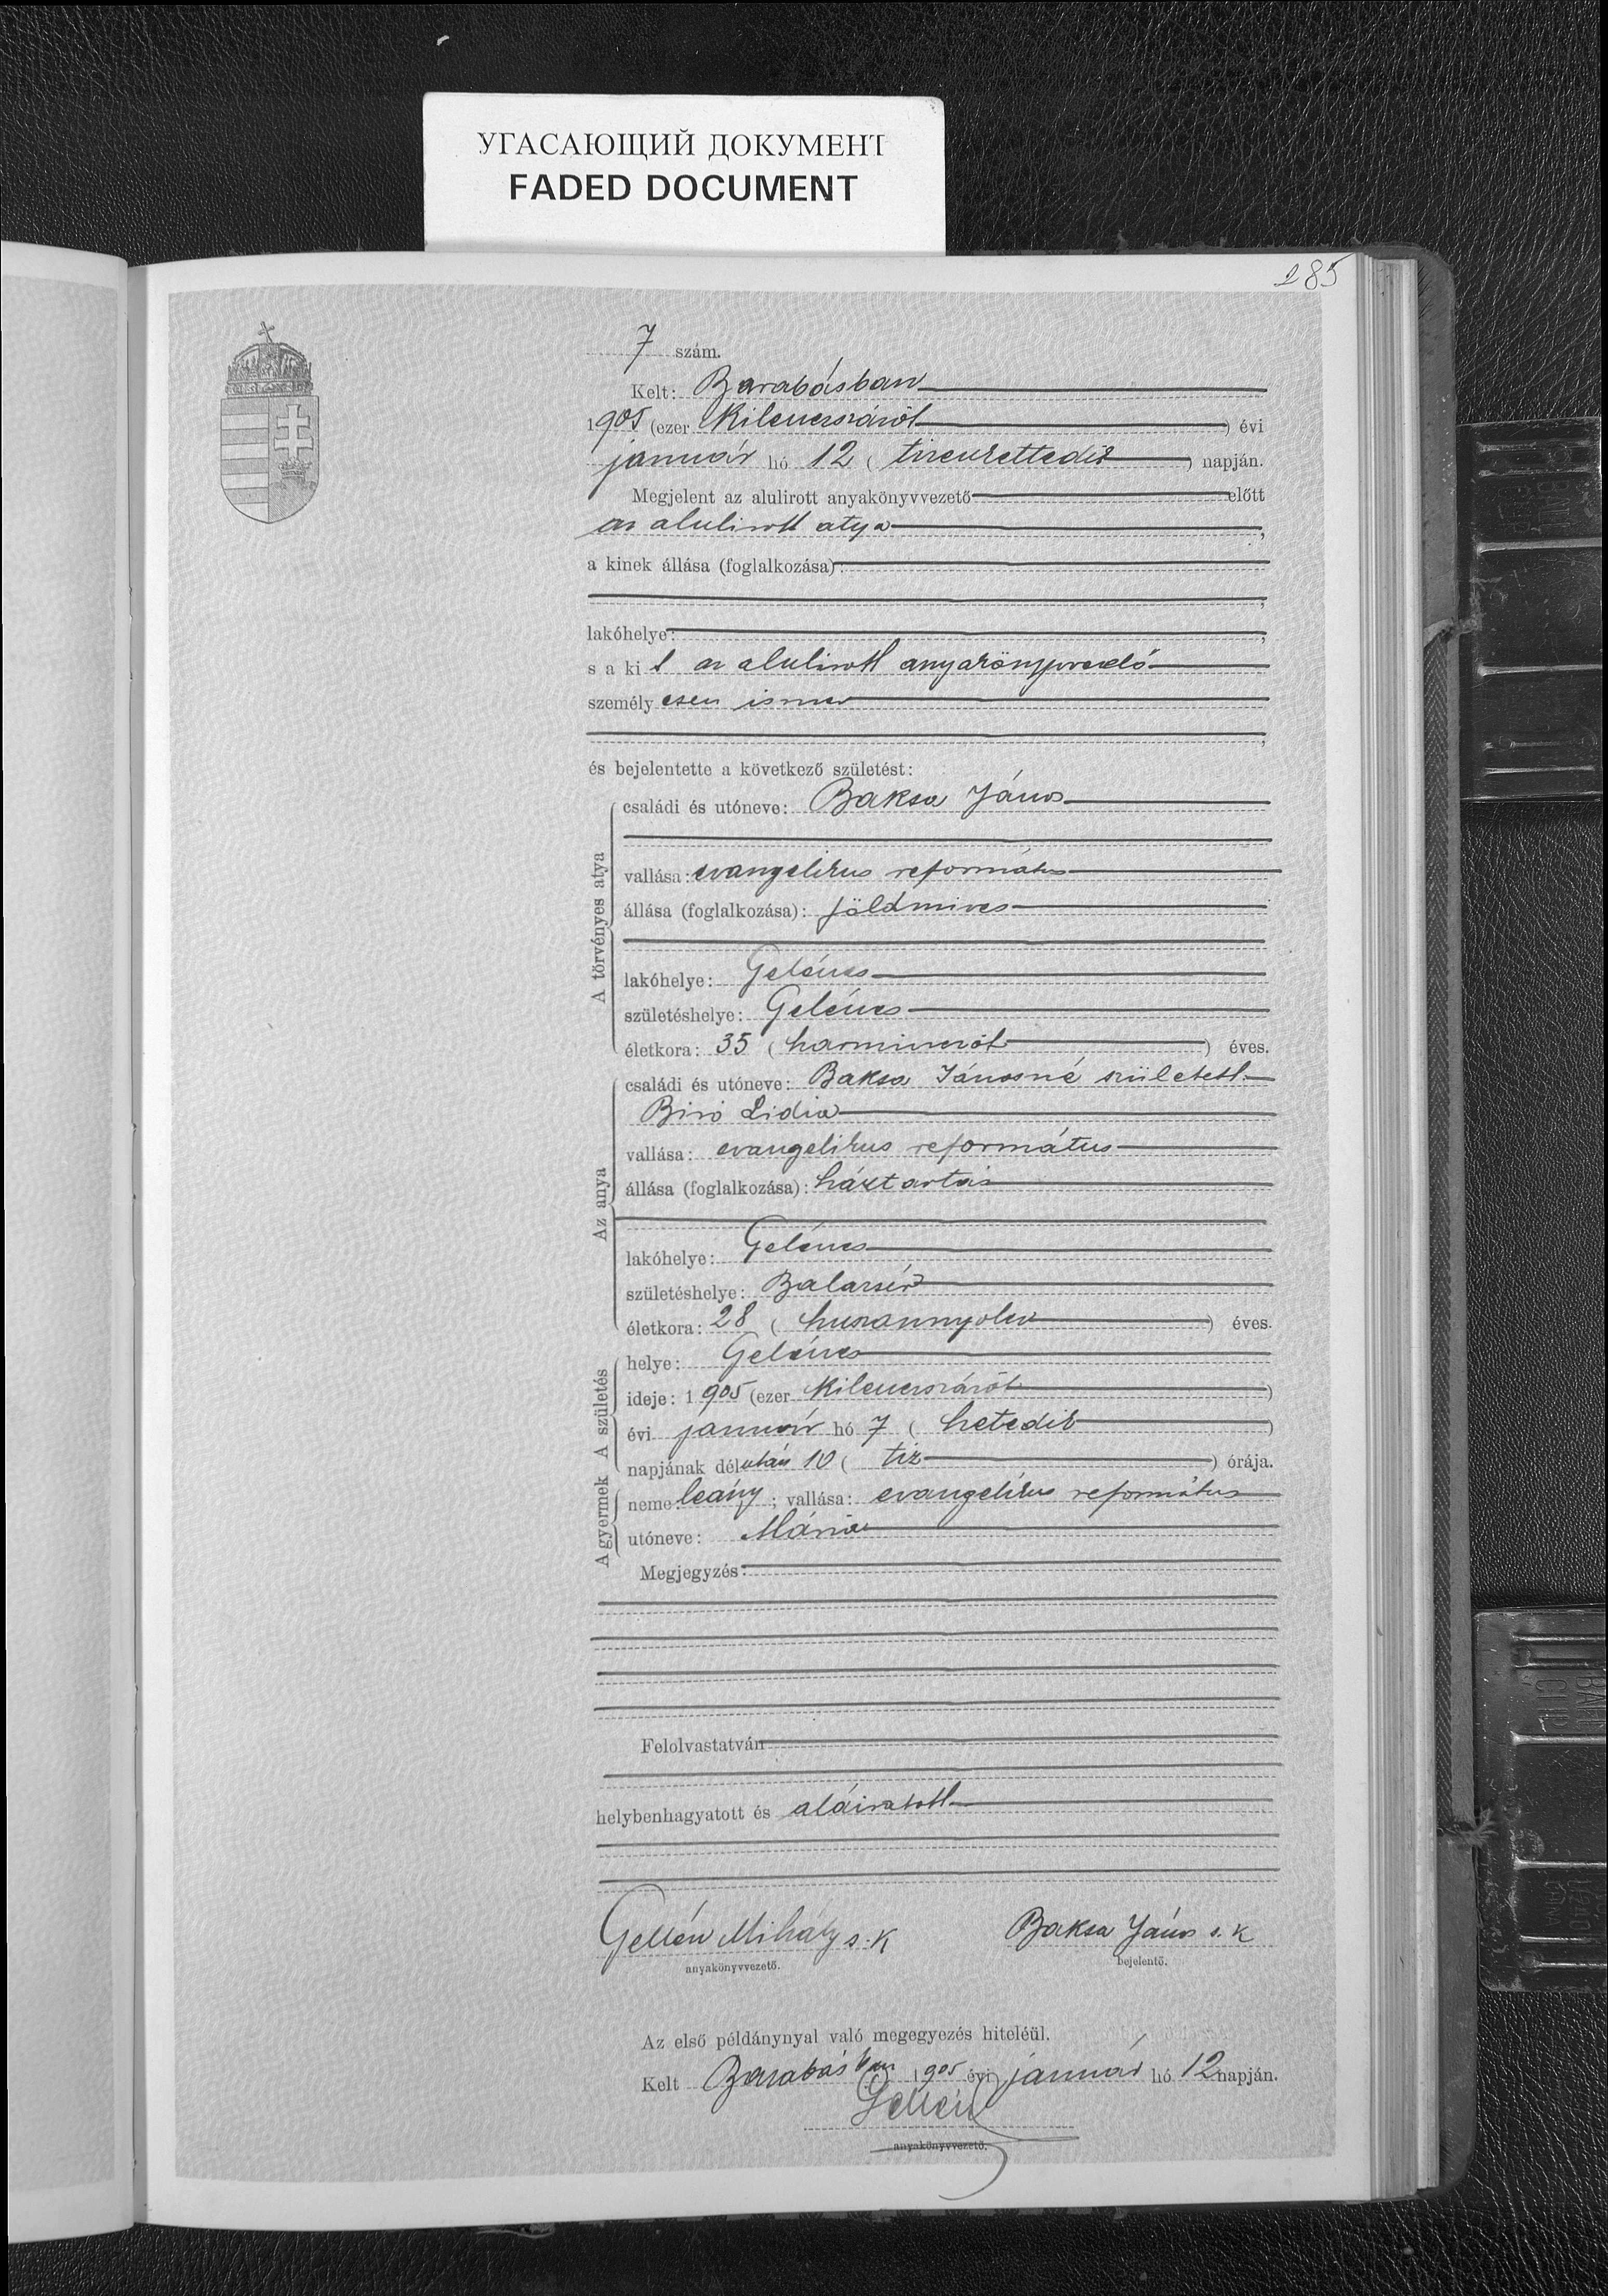 УГАСАЮЩИЙ ДОКУМЕНТ
FADED DOCUMENT
285
7 szám.
Kelt: Barabásban
1905 (ezer kilenczszázöt) évi
január hó 12 (tizenkettedik) napján.
Megjelent az alulirott anyakönyvvezető előtt
az alulirott atya,
a kinek állása (foglalkozása):
;
lakóhelye: ;
s a kit az alulirott anyakönyvvezető
személyesen ismer
,
és bejelentette a következő születést:
A törvényes atya
családi és utóneve: Baksa János
vallása: evangelikus református
állása (foglalkozása): földmives
lakóhelye: Gelénes
születéshelye: Gelénes
életkora: 35 (harminczöt) éves.
Az anya
családi és utóneve: Baksa Jánosné született
Biró Lidia
vallása: evangelikus református
állása (foglalkozása): háztartás
lakóhelye: Gelénes
születéshelye: Balazsér
életkora: 28 (huszonnyolcz) éves.
A születés
helye: Gelénes
ideje: 1905 (ezer kilenczszázöt)
évi január hó 7 (hetedik)
napjának délután 10 (tiz) órája.
A gyermek
neme: leány; vallása: evangelikus református
utóneve: Mária
Megjegyzés:
Felolvastatván
helybenhagyatott és aláiratott
Gellén Mihály s. k
Baksa János s. k
anyakönyvvezető.
bejelentő.
Az első példánynyal való megegyezés hiteléül.
Kelt Barabásban 1905 évi január hó 12 napján.
Gellén
anyakönyvvezető.